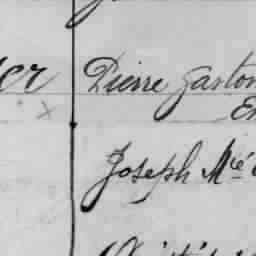 er Pierre Gaston
Joseph Mié